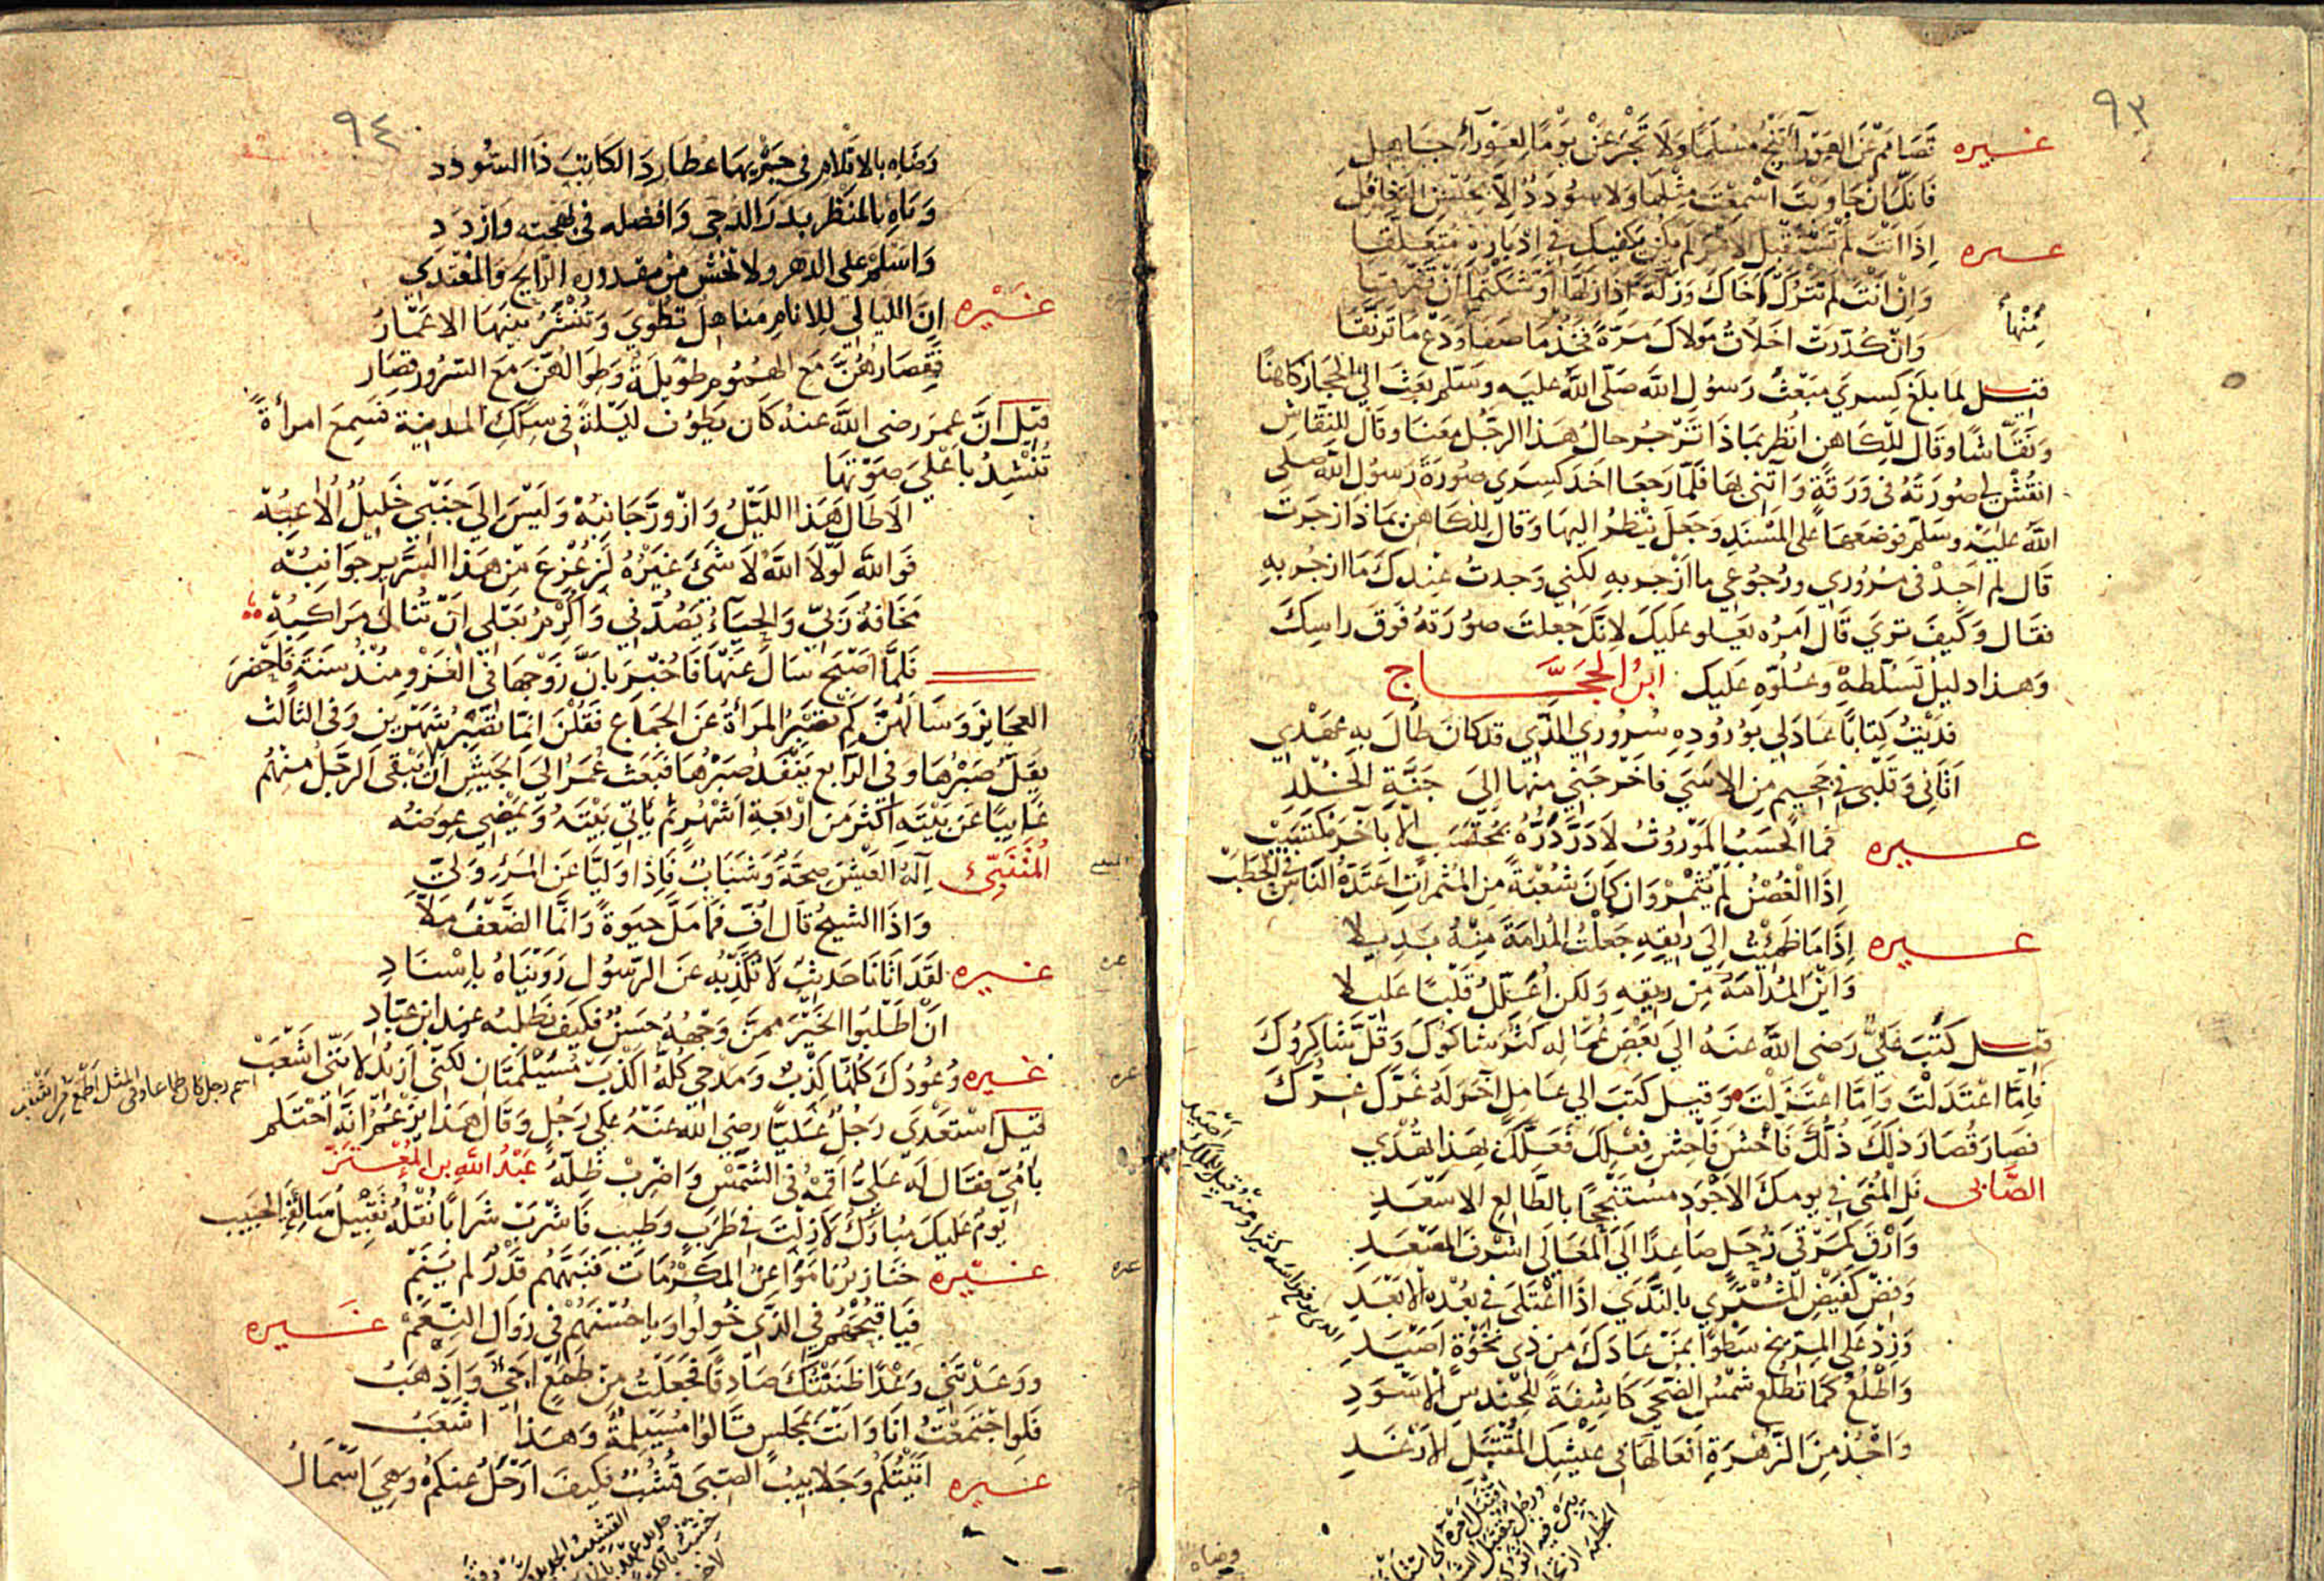 ٩٣
غيره تصامم عن العوراء تنج مسلما ولا تجزعن يوما لعوراء جاهل
فانك ان جاوبت اسمعت مثلها ولا سودد الا بحسن التغافل
غيره اذا انت لم تستقبل الامر لم يكن بكفيك في ادباره متعلقا
وان انت لم تترك اخاك وزلة اذا زلها اوشكتما ان تفرقا
منها وان كدرت اخلاق مولاك مرة فخذ ما صفا ودع ما ترنقا
قيل لما بلغ كسرى مبعث رسول الله صلى الله عليه وسلم بعث الى الحجاز كاهنا
ونقاشا وقال للكاهن انظر بماذا تزجر حال هذا الرجل معنا وقال للنقاش
انقش لي صورته في ورقة وآتني بها فلما رجعا اخذ كسرى صورة رسول الله صلى
الله عليه وسلم فوضعها على المسند وجعل ينظر اليها وقال للكاهن بماذا زجرت
قال لم اجد في مروري ورجوعي ما ازجر به لكني وجدت عندك ما ازجر به
فقال وكيف ترى قال امره يعلو عليك لانك جعلت صورته فوق راسك
وهذا دليل تسلطه وعلوه عليك ابن الحجاج
فديت كتابا عاد لي بوروده سروري الذي قد كان طال به عهدي
اتاني وقلبي في جحيم من الاسى فاخرجني منها الى جنة الخلد
غيره فما الحسب الموروث لا در دره بمحتسب الا بآخر مكتسب
اذا الغصن لم يثمر وان كان شعبة من المثمرات اعتده الناس في الحطب
غيره اذا ما ظمئت الى ريقه جعلت المدامة منه بديلا
واين المدامة من ريقه ولكن اعلل قلبا عليلا
قيل كتب علي رضي الله عنه الى بعض عماله كثر شاكوك وقل شاكروك
فاما اعتدلت واما اعتزلت وقيل كتب الى عامل آخر له غرك عزك
فصار قصار ذلك ذلك فاخش فاحش فعلك فعلك بهذا تهدي
الصابي نل المنى في يومك الاجود مستنجحا بالطالع الاسعد
وارق كمرقى زحل صاعدا الى المعالي اشرف المقعد
وفض كفيض المشتري بالندى اذا اعتلى في بعده الابعد
وزد على المريخ سطوا بمن عاداك من ذي نخوة اصيد
واطلع كما تطلع شمس الضحى كاشفة للحندس الاسود
وخذ من الزهرة افعالها في عيشك المقتبل الارغد
وضاه
٩٤
وضاه بالاقلام في جريها عطارد الكاتب ذا السودد
وباه بالمنظر بدر الدجى وافضله في بهجته وازدد
واسلم على الدهر ولا تخش من مقدوره الرايح والمغتدي
غيره ان الليالي للانام مناهل تطوى وتنشر بينها الاعمار
فقصارهن مع الهموم طويلة وطوالهن مع السرور قصار
قيل ان عمر رضي الله عنه كان يطوف ليلة في سكك المدينة فسمع امرأة
تنشد باعلى صوتها
الا طال هذا الليل وازور جانبه وليس الى جنبي خليل الاعبه
فوالله لولا الله لا شيء غيره لزعزع من هذا السرير جوانبه
مخافة ربي والحياء يصدني واكرم بعلي ان تنال مراكبه
فلما اصبح سال عنها فاخبر بان زوجها في الغزو منذ سنة فاحضر
العجايز وسالهن كم تصبر المرأة عن الجماع فقلن انما تصبر شهرين وفي الثالث
يقل صبرها وفي الرابع ينفد صبرها فبعث عمر الى الجيش ان لا يبقى الرجل منهم
غايبا عن بيته اكثر من اربعة اشهر ثم ياتي بيته ويمضي عوضه
المتنبي آلة العيش صحة وشباب فاذا وليا عن المرء ولى
واذا الشيخ قال اف فما مل حيوة وانما الضعف ملا
غيره لقد اتانا حديث لا نكذبه عن الرسول رويناه باسناد
ان اطلبوا الخير ممن وجهه حسن فكيف نطلبه عند ابن عباد
غيره وعودك كلها كذب ومدحي كله اكذب مسيلمتان لكني ازيد لانني اشعب
اسم رجل كان طماعا وفي المثل اطمع من اشعب
قيل استعدى رجل عليا رضي الله عنه على رجل وقال هذا يزعم انه احتلم
بامي فقال له علي اقمه في الشمس واضرب ظله عبد الله بن المعتز
يوم عليك مبارك لا زلت في طرب وطيب فاشرب شرابا نقله تقبيل سالفة الحبيب
غيره خنازير ناموا عن المكرمات فنبههم قدر لم ينم
فيا قبحهم في الذي خولوا ويا حسنهم في زوال النعم غيره
ووعدتني وعدا ظننتك صادقا فجعلت من طمع اجيء واذهب
فلو اجتمعت انا وانت بمجلس قالوا مسيلمة وهذا اشعب
غيره اتيتكم وجلابيب الصبى قشب فكيف ارحل عنكم وهي اسمال